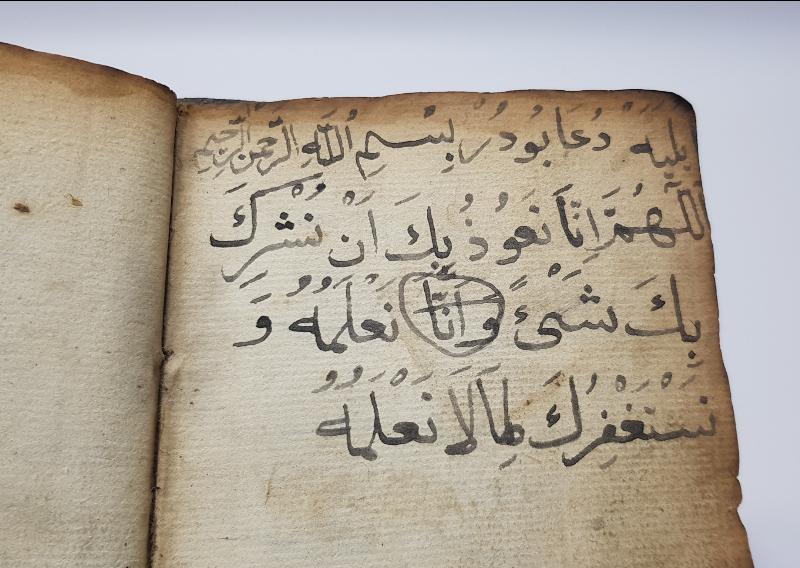 بليه دُعَا بُودُرْ بِسْمِ اللَّهِ الرَّحْمٰنِ الرَّحِيمِ
اَللّٰهُمَّ اِنَّا نَعُوذُ بِكَ اَنْ نُشْرِكَ
بِكَ شَيْئً وَاَنَّا نَعْلَمُهُ وَ
نَسْتَغْفِرُكَ لِمَا لَا نَعْلَمُهُ